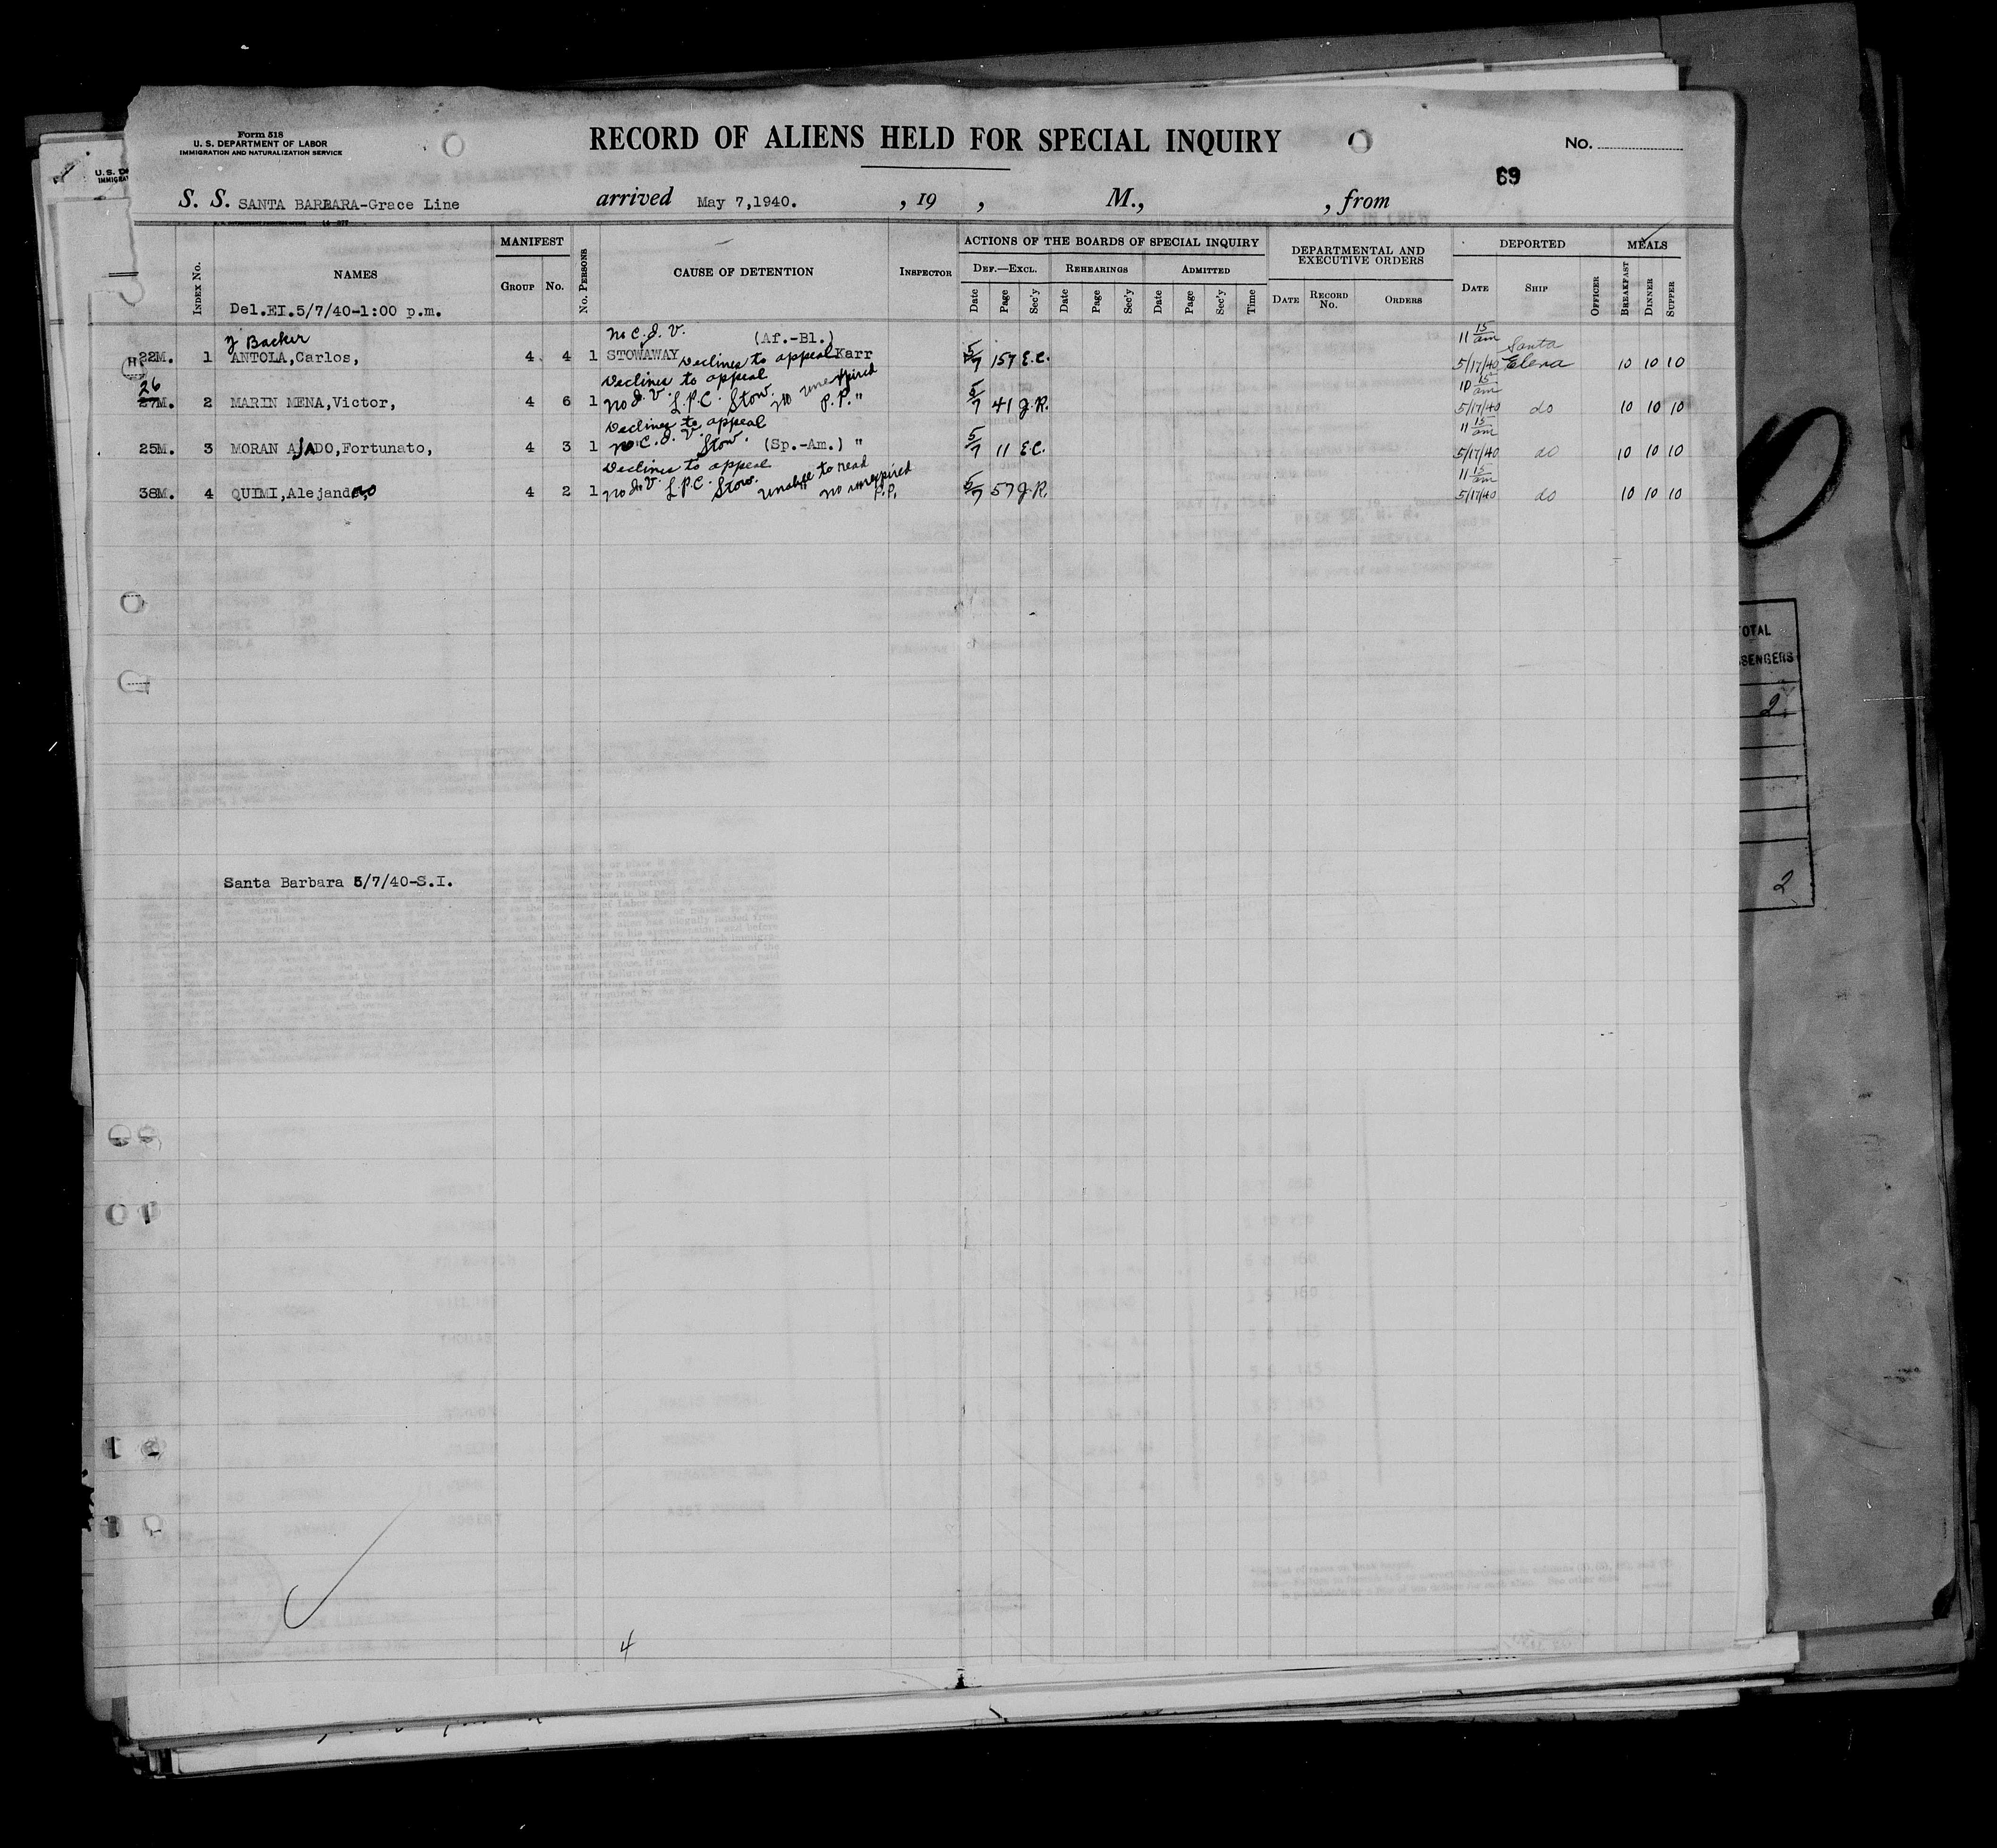 Form 518
U. S. DEPARTMENT OF LABOR
IMMIGRATION AND NATURALIZATION SERVICE
RECORD OF ALIENS HELD FOR SPECIAL INQUIRY
No.
69
S. S. SANTA BARBARA-Grace Line arrived May 7,1940. , 19 , M., , from
INDEX No. NAMES MANIFEST GROUP No. No. PERSONS CAUSE OF DETENTION INSPECTOR ACTIONS OF THE BOARDS OF SPECIAL INQUIRY DEPARTMENTAL AND EXECUTIVE ORDERS DEPORTED MEALS
DEF.—EXCL. REHEARINGS ADMITTED
Date Page Sec'y Date Page Sec'y Date Page Sec'y Time DATE RECORD No. ORDERS DATE SHIP OFFICER BREAKFAST DINNER SUPPER
Del.EI.5/7/40-1:00 p.m.
y Backer no C.I.V. (Af.-Bl.) 11 15 am Santa
H 22M. 1 ANTOLA,Carlos, 4 4 1 STOWAWAY Declines to appeal Karr 5/7 157 E.C. 5/17/40 Elena 10 10 10
26 Declines to appeal 10 15 am
27M. 2 MARIN MENA,Victor, 4 6 1 no I.V. L.P.C. Stow. no unexpired P.P. " 5/7 41 J.R. 5/17/40 do 10 10 10
Declines to appeal 11 15 am
25M. 3 MORAN AJADO,Fortunato, 4 3 1 no C.I.V. Stow. (Sp.-Am.) " 5/7 11 E.C. 5/17/40 do 10 10 10
Declines to appeal unable to read 11 15 am
38M. 4 QUIMI,Alejandro 4 2 1 no I.V. L.P.C. Stow. " no unexpired P.P. 5/7 57 J.R. 5/17/40 do 10 10 10
Santa Barbara 5/7/40-S.I.
4
TOTAL
2
2